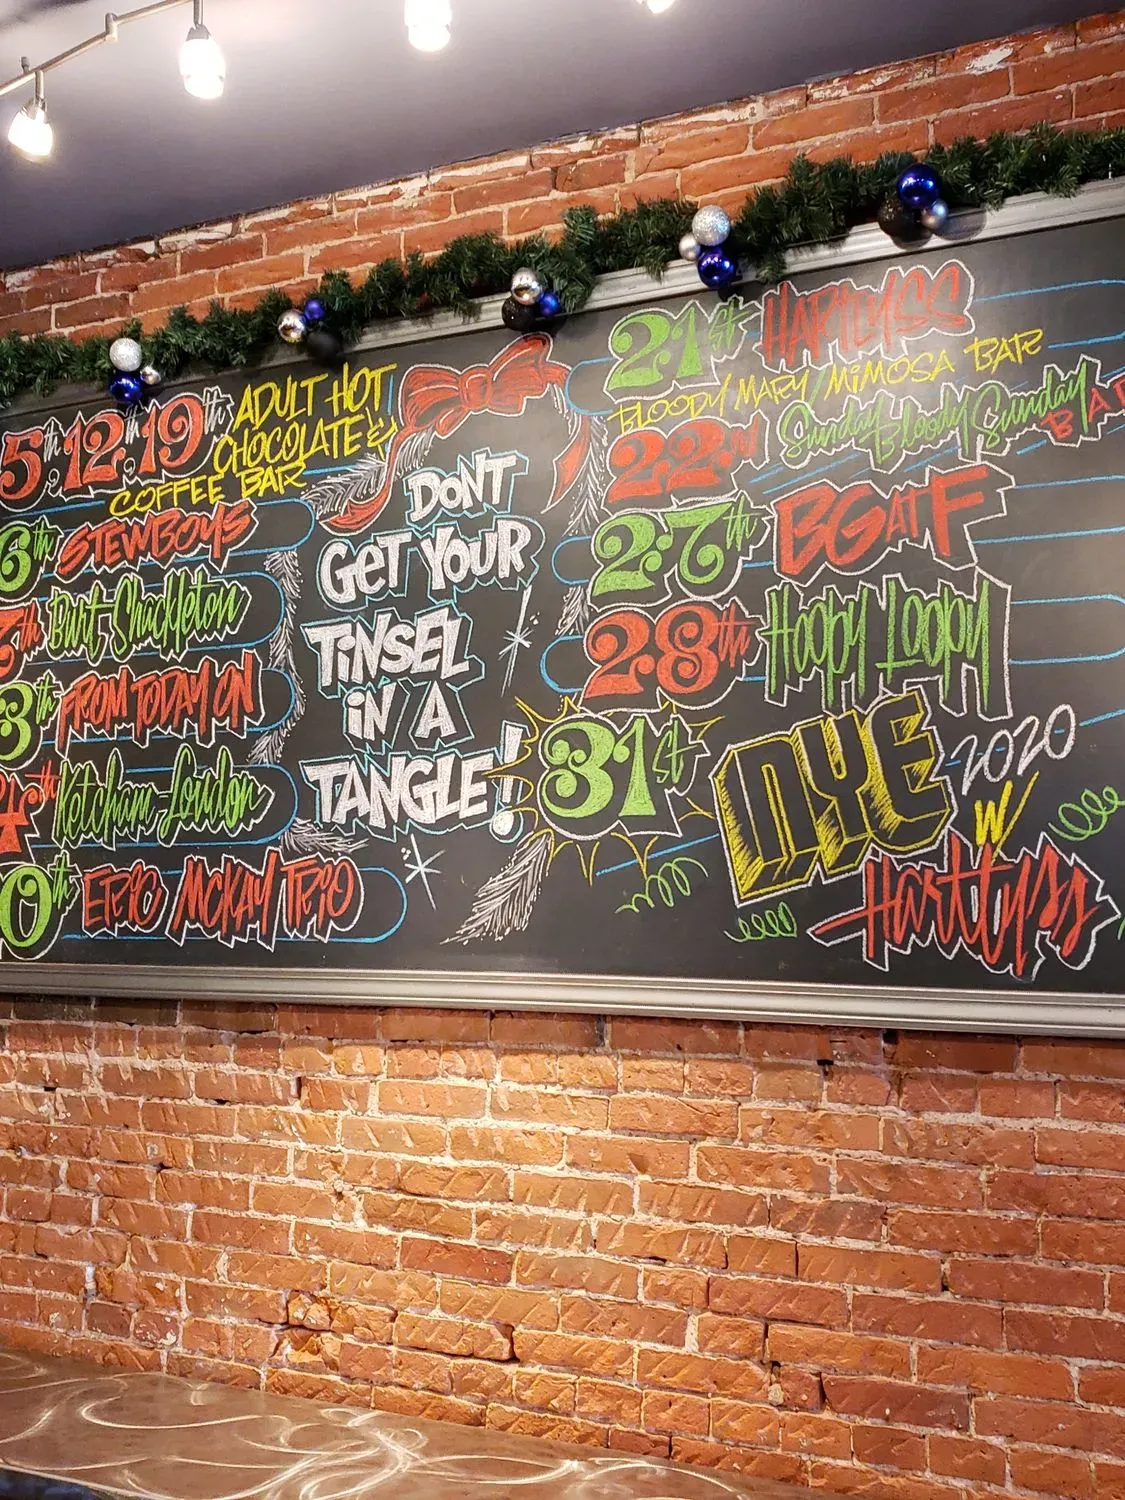 5th, 12th, 19th ADULT HOT
CHOCOLATE &
COFFEE BAR
6th STEWBOYS
7th Burt-Shackleton
3th FROM TODAY ON
4th Ketcham-Loudon
0th ERIC MCKAY TRIO
DONT
GET YOUR
TINSEL
IN A
TANGLE!
21st HARTLYSS
BLOODY MARY/MIMOSA BAR
22nd Sunday Bloody Sunday
BA
27th BGATF
28th Hoopy Loopy
31st NYE 2020
W/
Harttyss